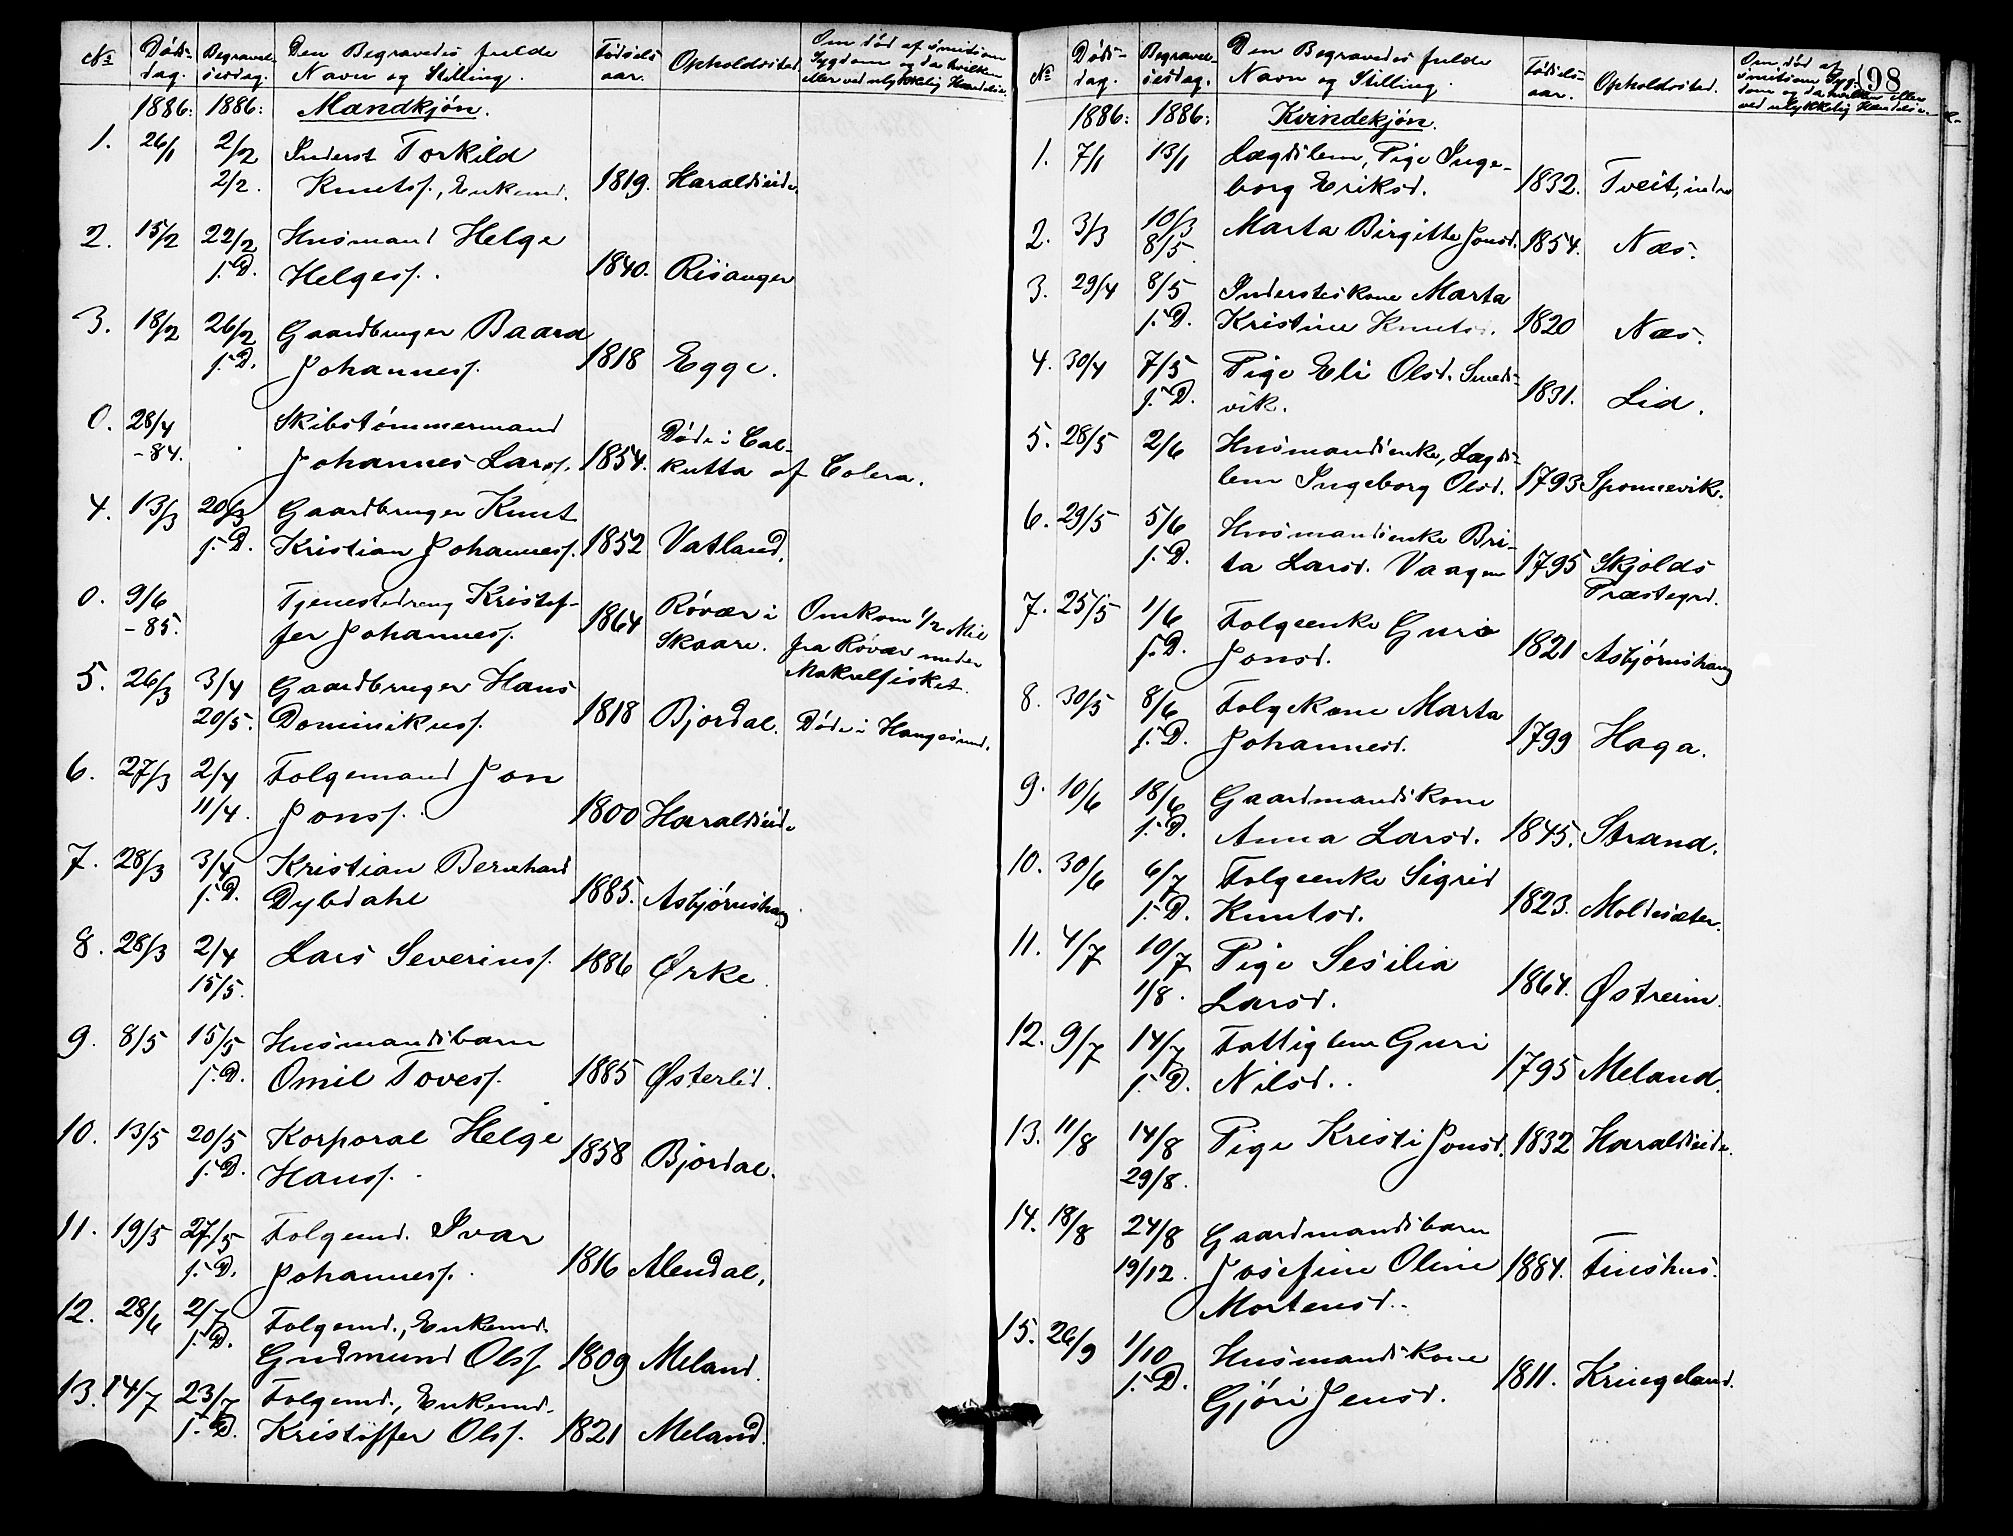 № Døds- Begravel- Den Begravedes fulde Fødsels- Opholdssted Om død af smitsom
dag. sesdag. Navn og Stilling. aar. Sygdom og da hvilken
eller ved ulykkelig Hændelse.
1886: 1886: Mandkjøn.
1. 26/1 2/2 Inderst Torkild
2/2. Knuts., Enkemd. 1819. Haraldseide
2. 15/2 22/2 Husmand Helge
s. D. Helges. 1840. Risanger
3. 18/2 26/2 Gaardbruger Baard
s. D. Johanness. 1818 Egge.
0. 28/4 Skibstømmermand Døde i Cal-
-84. Johannes Larss. 1854. kutta af Colera.
4. 13/3 20/3 Gaardbruger Knut
s. D. Kristian Johanness. 1852 Vatland.
0. 9/6 Tjenestedreng Kristof- 1864 Røvær i Omkom 1/2 Mil
-85. fer Johanness. Skaare. fra Røvær under
Makrelfisket.
5. 26/3 3/4 Gaardbruger Hans
20/5. Dominikuss. 1818 Bjordal. Døde i Haugesund.
6. 27/3 2/4 Folgemand Jon
11/4. Jonss. 1800 Haraldseide
7. 28/3 3/4 Kristian Bernhard
s. D. Dybdahl 1885. Asbjørnshaug
8. 28/3 2/4 Lars Severinss. 1886 Ørke.
15/5.
9. 8/5 15/5 Husmandsbarn
s. D. Omil Toves. 1885 Østerlid.
10. 13/5 20/5 Korporal Helge 1858 Bjordal.
s. D. Hanss.
11. 19/5 27/5 Folgemd. Ivar
s. D. Johanness. 1816 Alendal.
12. 28/6 2/7 Folgemd., Enkemd.
s. D. Gudmund Olss. 1809 Meland.
13. 14/7 23/7 Folgemd., Enkemd.
s. D. Kristoffer Olss. 1821 Meland.
№ Døds- Begravel- Den Begravedes fulde Fødsels- Opholdssted. Om død af
dag. sesdag. Navn og Stilling. aar. smitsom Syg- 98
dom og da hvilken eller
ved ulykkelig Hændelse.
1886: 1886: Kvindekjøn.
1. 7/1 13/1 Lægdslem, Pige Inge-
borg Eriksd. 1832. Tveit, indre
2. 3/3 10/3 Marta Birgitte Jonsd. 1854. Næs.
8/5.
3. 29/4 8/5 Inderstekone Marta
s. D. Kristine Knutsd. 1820 Næs.
4. 30/4 7/5 Pige Eli Olsd. Smeds-
s. D. vik. 1831. Lid.
5. 28/5 2/6 Husmandsenke, Lægds-
lem Ingeborg Olsd. 1793 Sponnevik.
6. 29/5 5/6 Husmandsenke Bri-
s. D. ta Larsd. Vaagen 1795 Skjolds
Præstegrd.
7. 25/5 1/6 Folgeenke Guri
s. D. Jonsd. 1821 Asbjørnshaug
8. 30/5 8/6 Folgekone Marta
s. D. Johannesd. 1799 Haga.
9. 10/6 18/6 Gaardmandskone
s. D. Anna Larsd. 1845. Strand.
10. 30/6 6/7 Folgeenke Sigrid
s. D. Knutsd. 1823. Moldesæter.
11. 4/7 10/7 Pige Sesilia
1/8. Larsd. 1864. Østreim.
12. 9/7 14/7 Fattiglem Guri
s. D. Nilsd. 1795 Meland.
13. 11/8 14/8 Pige Kristi Jonsd. 1832 Haraldseide.
29/8.
14. 18/8 24/8 Gaardmandsbarn
19/12. Josefine Oline 1884. Tinshus.
Mortensd.
15. 26/9 1/10 Husmandskone
s. D. Gjøri Jensd. 1811. Kringeland.